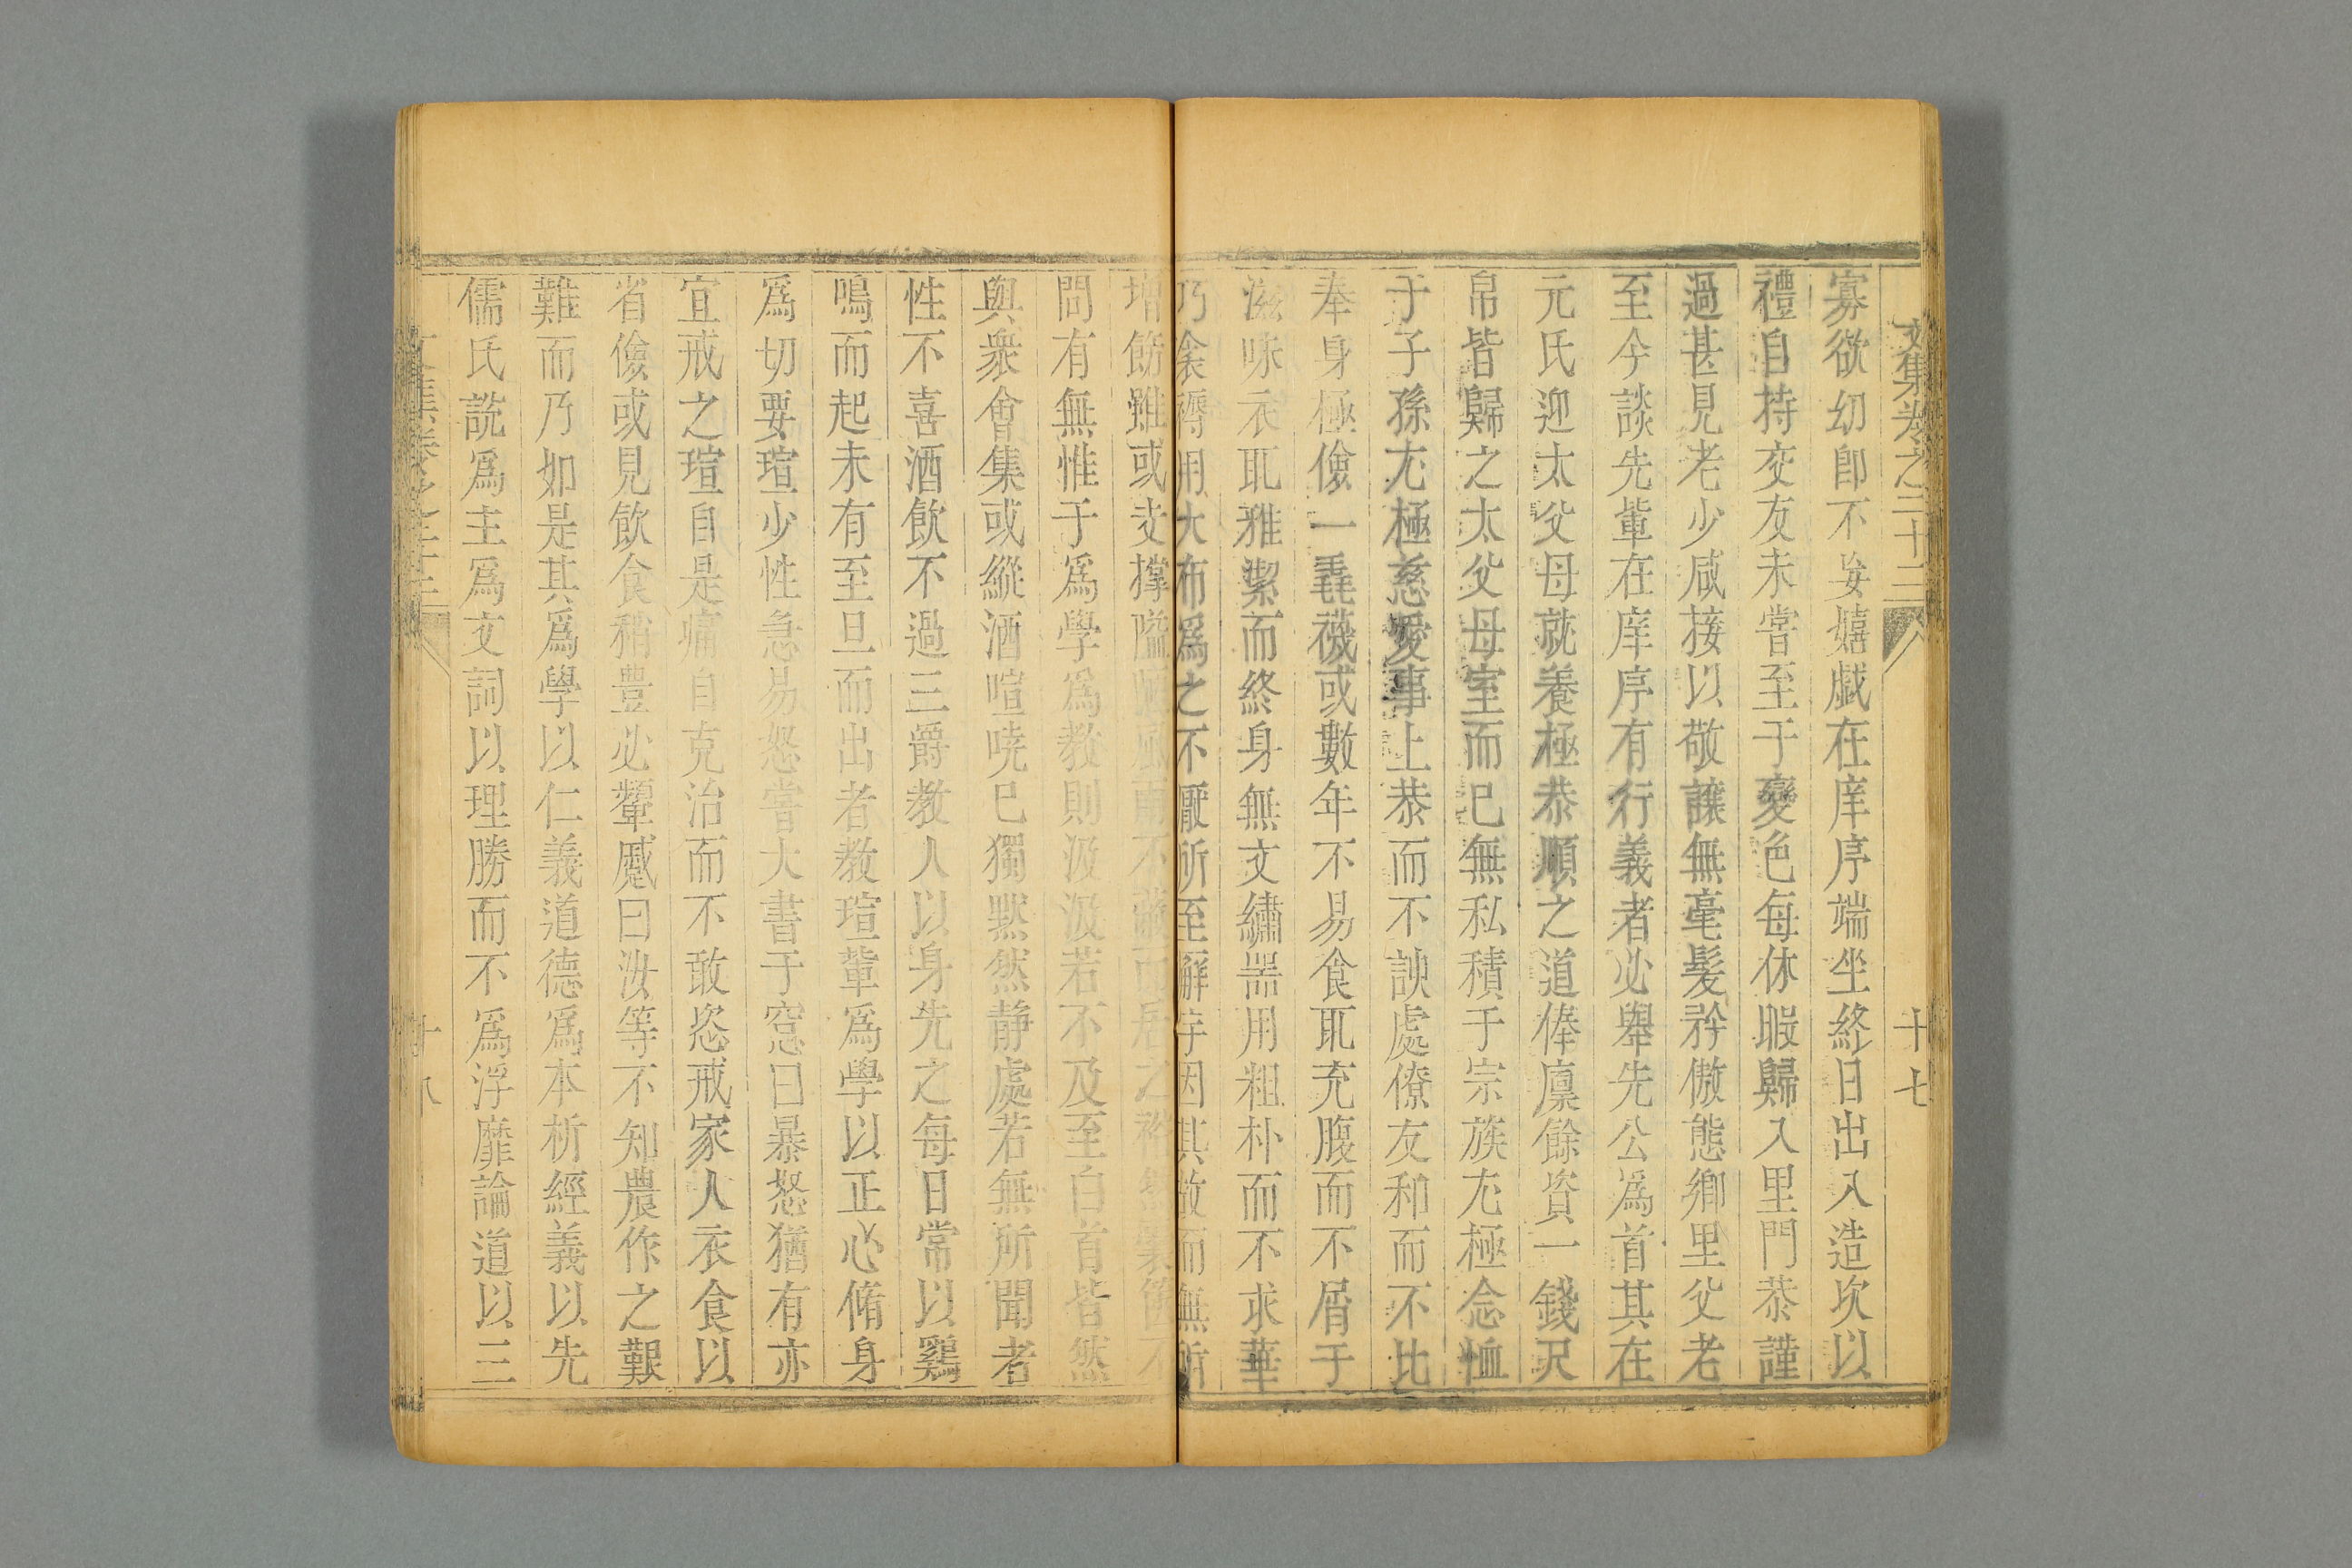 文集卷之二十三
十七
寡欲幼卽不妄嬉戯在庠序端坐終日出入造次以
禮自持交友未嘗至于變色每休暇歸入里門恭謹
過甚見老少咸接以敬讓無毫髪矜傲態鄉里父老
至今談先軰在庠序有行義者必舉先公爲首其在
元氏迎太父母就養極恭順之道俸廩餘資一錢尺
帛皆歸之太父母室而已無私積于宗族尤極念恤
于子孫尤極慈愛事上恭而不諛處僚友和而不比
奉身極儉一毳襪或數年不易食取充腹而不屑于
滋味衣取雅潔而終身無文繡器用粗朴而不求華
乃衾褥用大布爲之不厭所至廨宇因其敝而無所
增飾雖或支撑隘陋風雨不蔽而居之裕然囊篋不
問有無惟于爲學爲教則汲汲若不及至白首皆然
與衆會集或縱酒喧嘵已獨默然静處若無所聞者
性不喜酒飲不過三爵教人以身先之每日常以鷄
鳴而起未有至旦而出者教瑄軰爲學以正心脩身
爲切要瑄少性急易怒嘗大書于窓曰暴怒猶有亦
宜戒之瑄自是痛自克治而不敢恣戒家人衣食以
省儉或見飲食稍豊必顰蹙曰汝等不知農作之艱
難而乃如是其爲學以仁義道德爲本析經義以先
儒氏説爲主爲文詞以理勝而不爲浮靡論道以三
十八